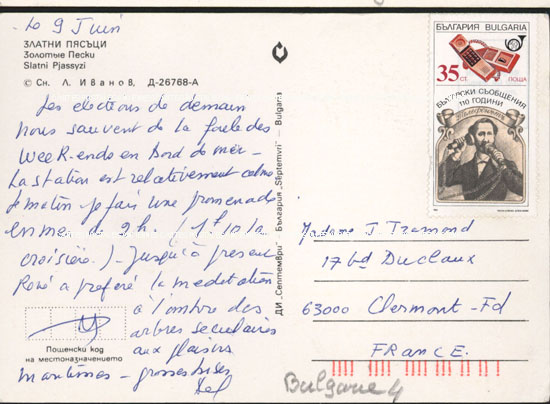 Le 9 Juin
ЗЛАТНИ ПЯСЪЦИ
Золотые Пески
Slatni Pjassyzi
© Сн. Л. Иванов, Д-26768-А
Les elections de demain
nous sauvent de la foule des
week-ends en bord de mer -
La station est relativement calme
le matin je fais une promenade
en mer de 9h. / 1f10 la
croisière.) - Jusqu'à present
René a préféré la meditation
à l'ombre des
arbres seculaires
aux plaisirs
maritimes - grosses bises
Пощенски код
на местоназначението
ДИ „Септември“ – България „Septemvri“ – Bulgaria
БЪЛГАРИЯ BULGARIA
35 СТ.
ПОЩА
БЪЛГАРСКИ СЪОБЩЕНИЯ
110 ГОДИНИ
Madame J. Tramond
17 bd Duclaux
63000 Clermont-Fd
FRANCE.
Bulgarie 4